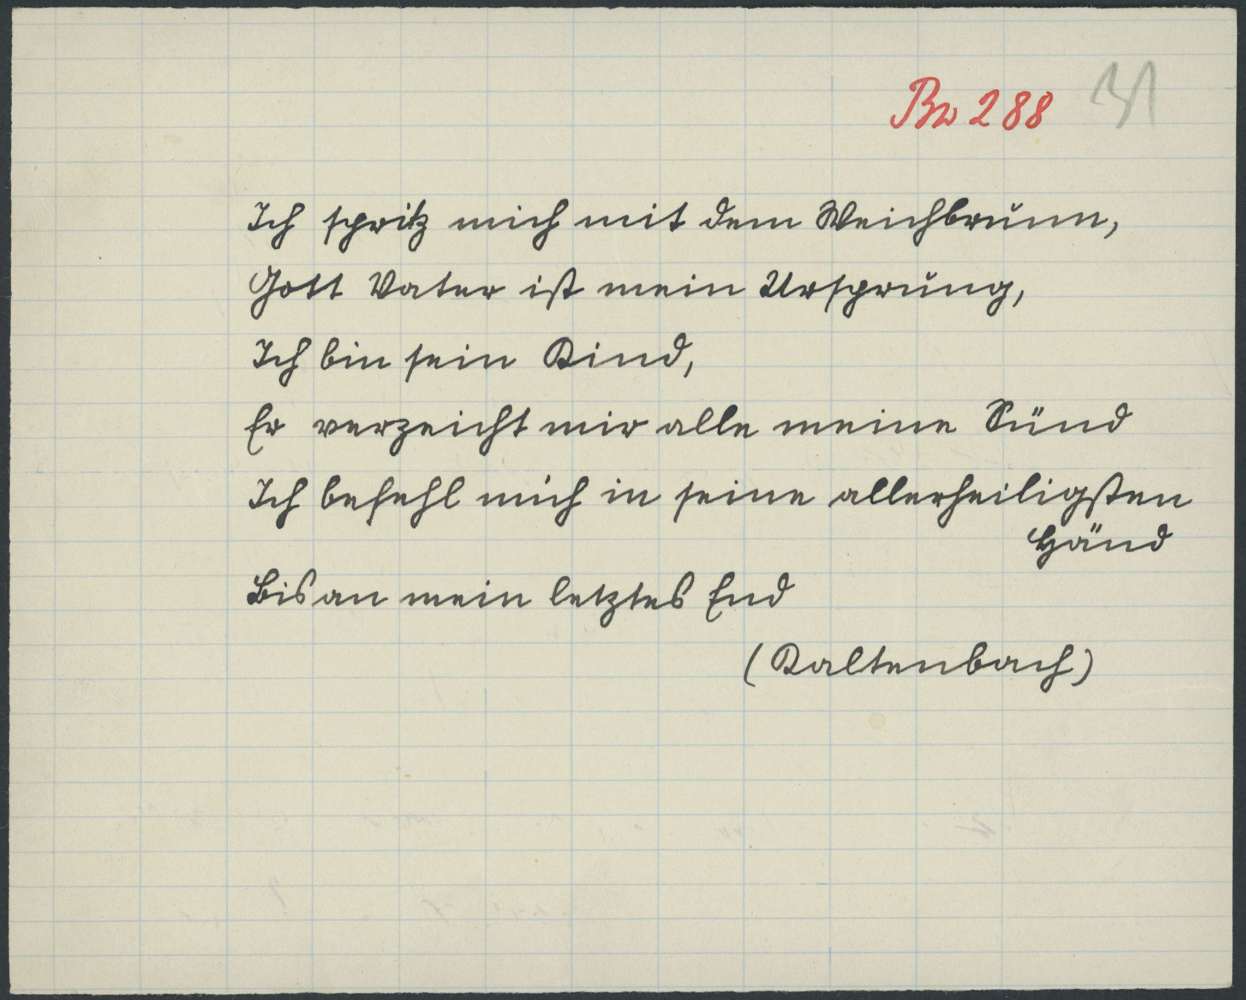 Bw 288
31
Ich spritz mich mit dem Weichbrunn,
Gott Vater ist mein Ursprung,
Ich bin sein Kind,
Er verzeicht mir alle meine Sünd
Ich befehl mich in seine allerheiligsten
Händ
Bis an mein letztes End
(Kaltenbach)